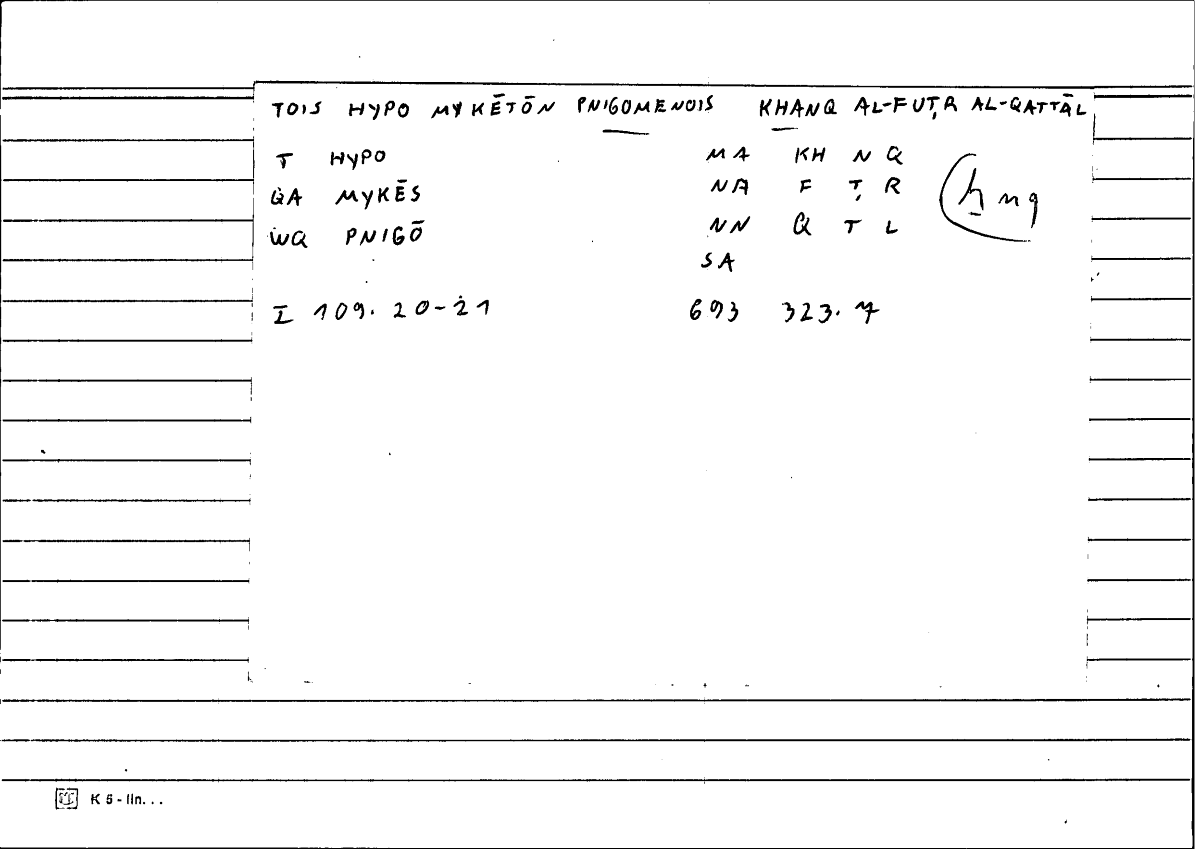 TOIS HYPO MYKĒTŌN PNIGOMENOIS KHANQ AL-FUṬR AL-QATTĀL
T HYPO MA KH N Q
QA MYKĒS NA F Ṭ R
WQ PNIGŌ NN Q T L
SA
ḫnq
I 109. 20-21 693 323. 7
K 5 - lin. . .